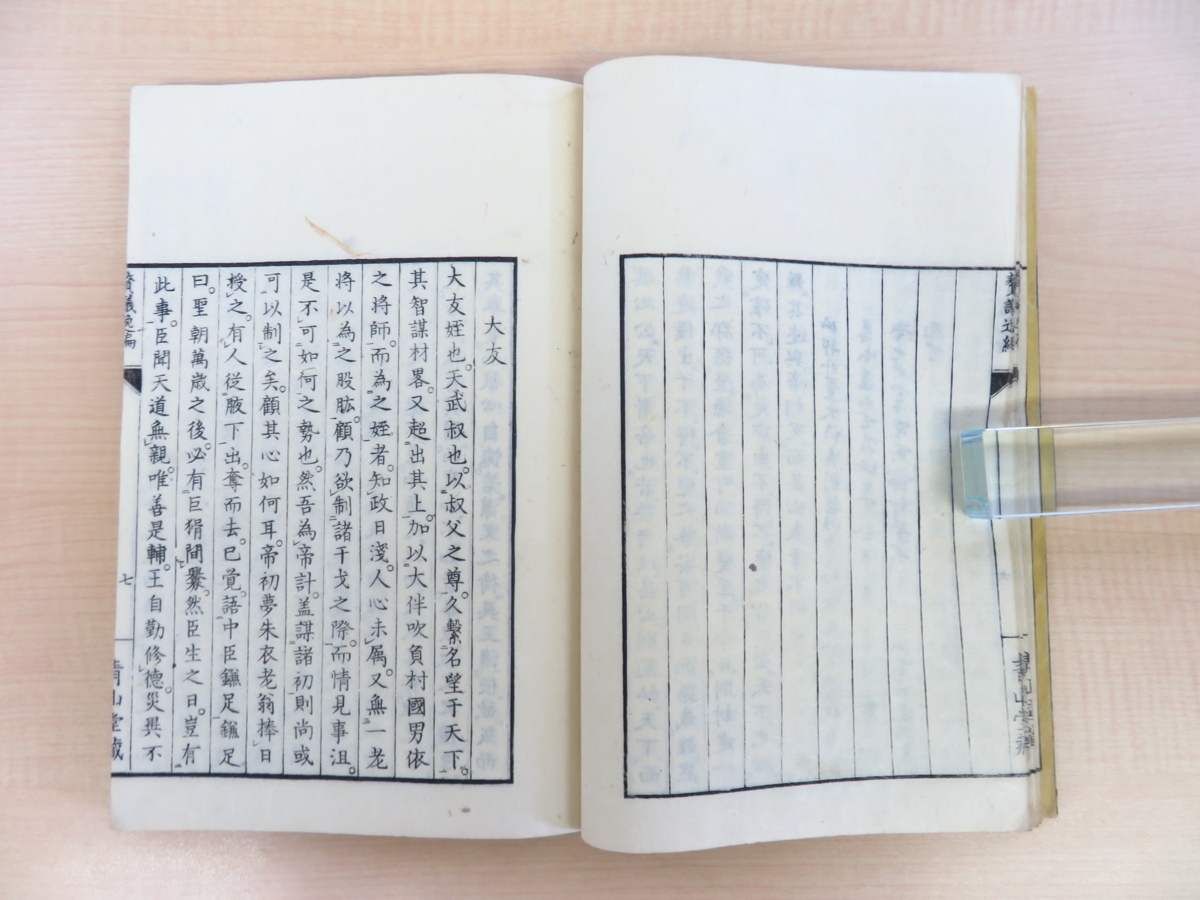 大友
大友姪也。天武叔也。以叔父之尊。久繫名望于天下。
其智謀材畧。又超出其上。加以大伴吹負村國男依
之將師。而為之姪者。知政日淺。人心未属。又無一老
將以為之股肱。顧乃欲制諸干戈之際。而情見事沮。
是不可如何之勢也。然吾為帝計。盖謀諸初則尚或
可以制之矣。顧其心如何耳。帝初夢朱衣老翁捧日
授之。有人従腋下出。奪而去。已覚。語中臣鎌足鎌足
曰。聖朝萬歳之後。必有巨猾間釁。然臣生之日。豈有
此事。臣聞天道無親。唯善是輔。王自勤修德災異不
七
青山堂藏